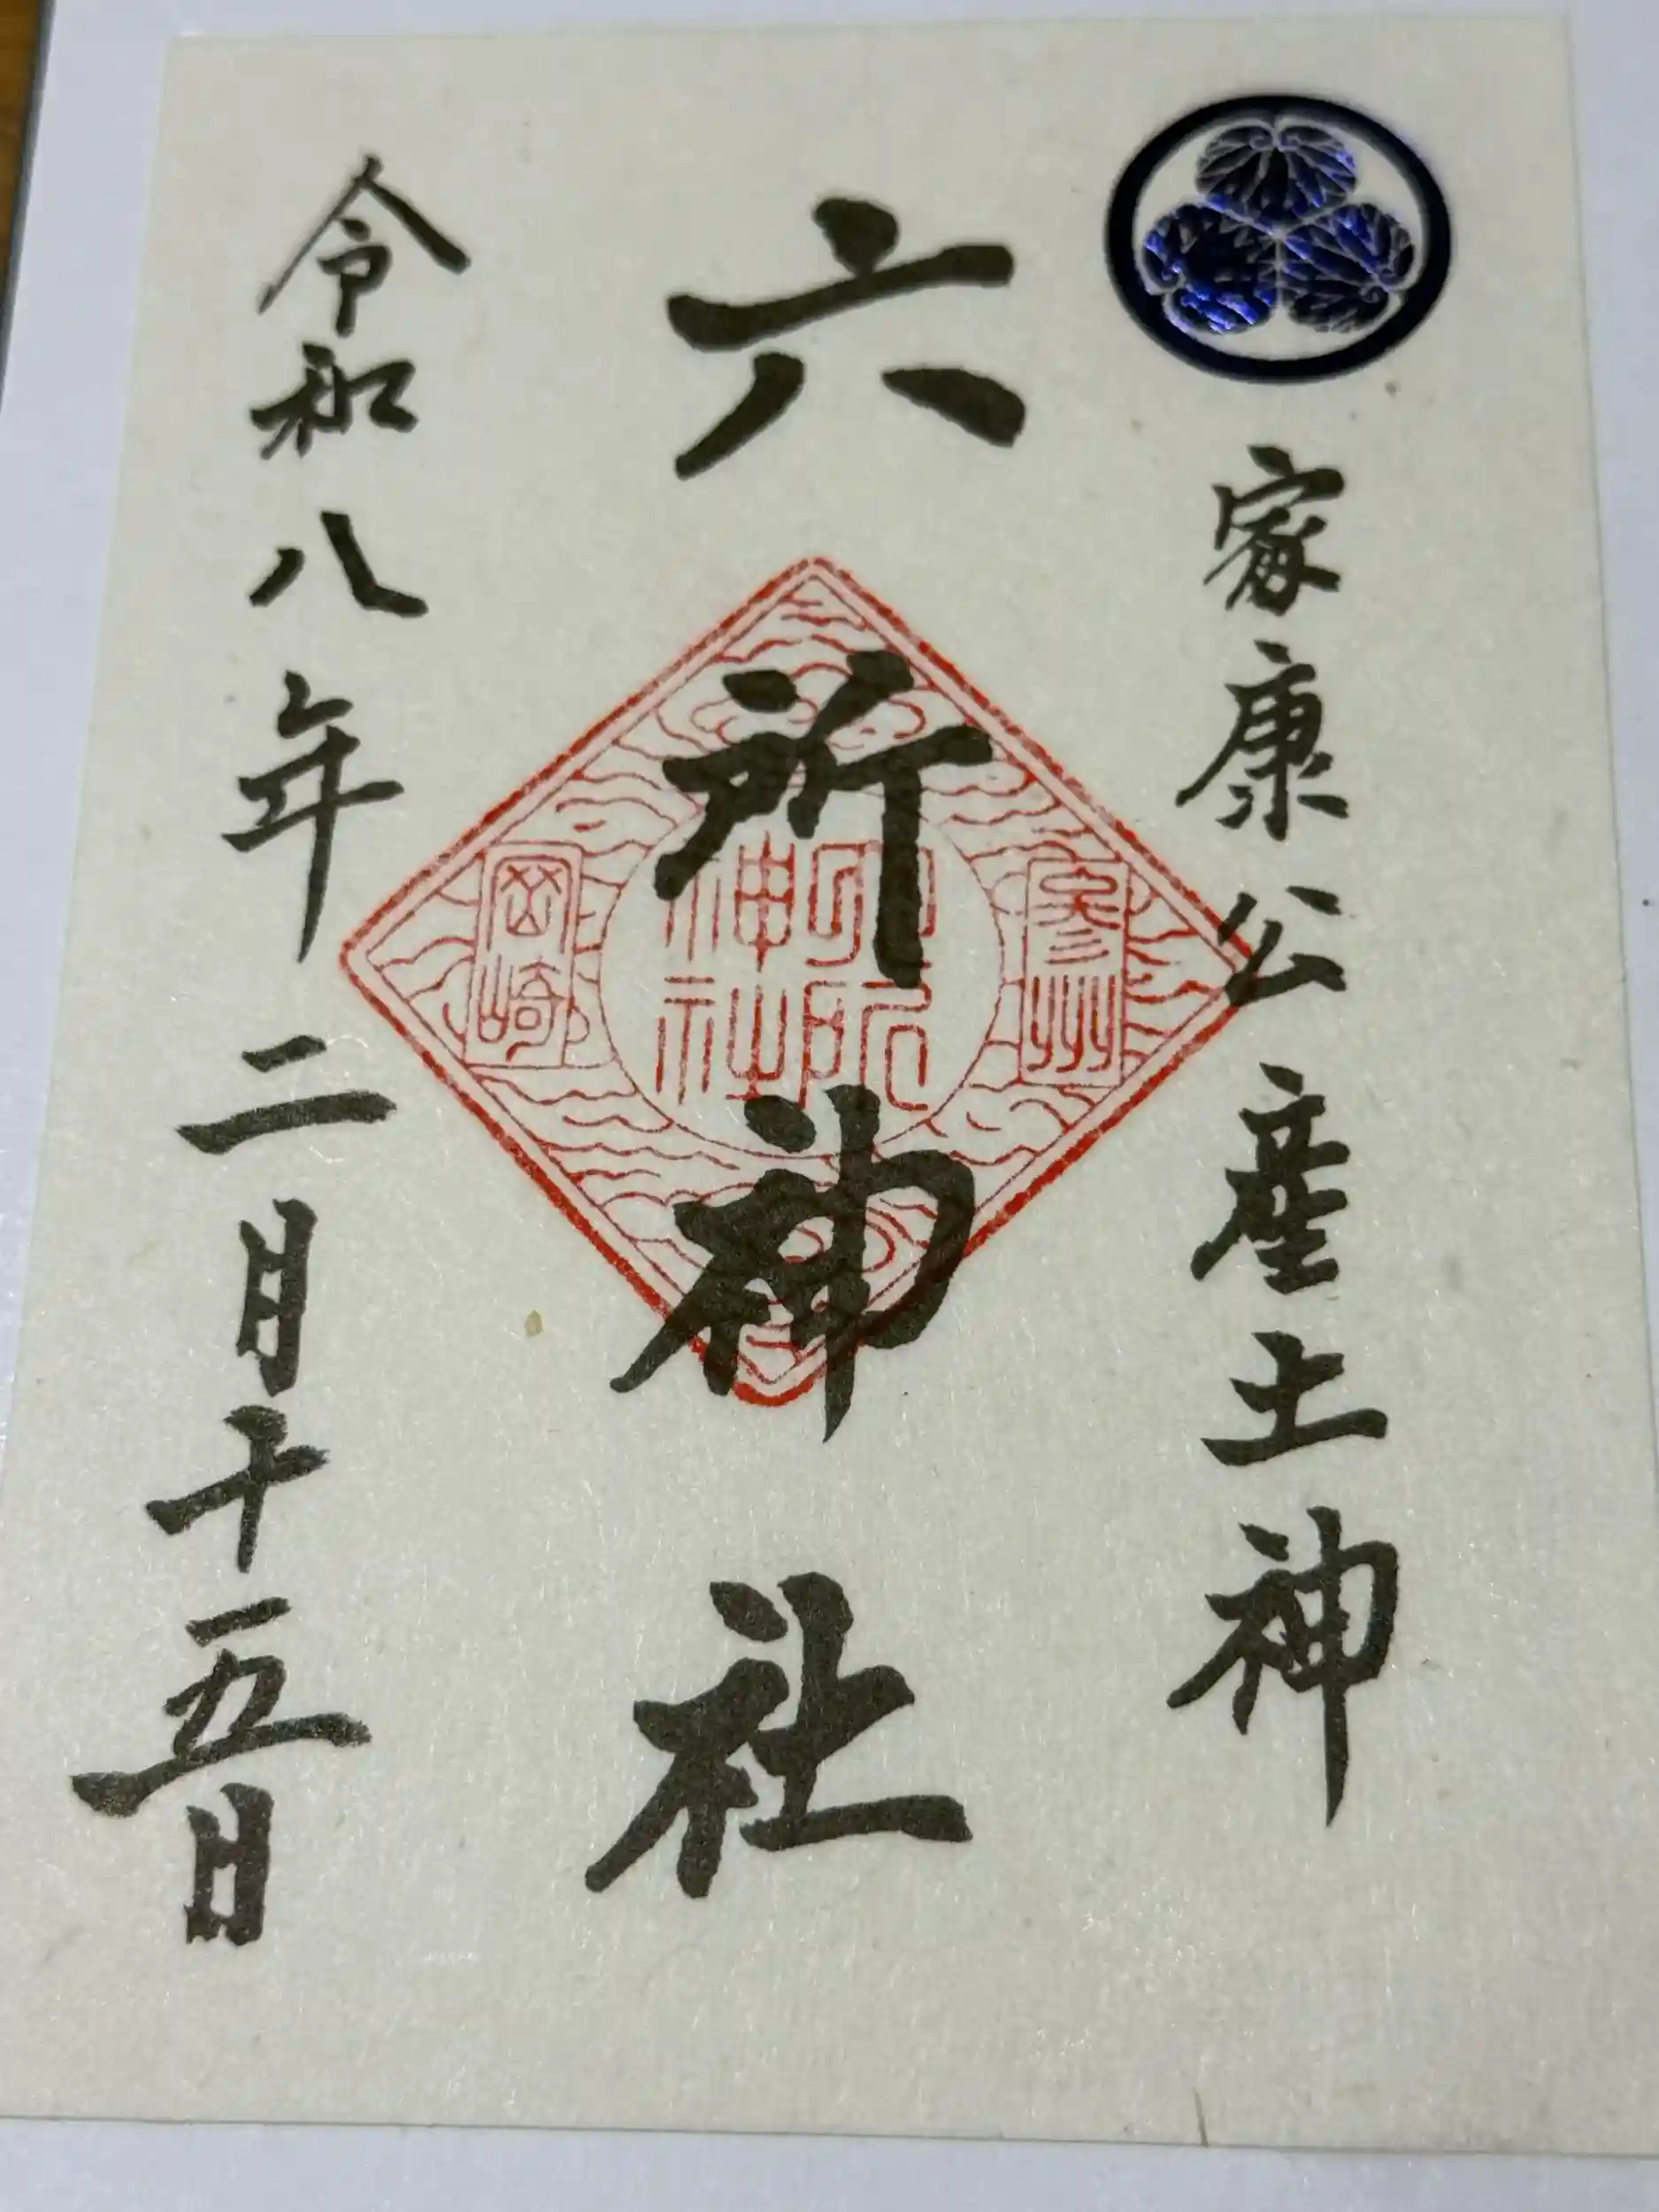 家康公産土神
六所神社
参州
六所神社
岡崎
令和八年二月十五日